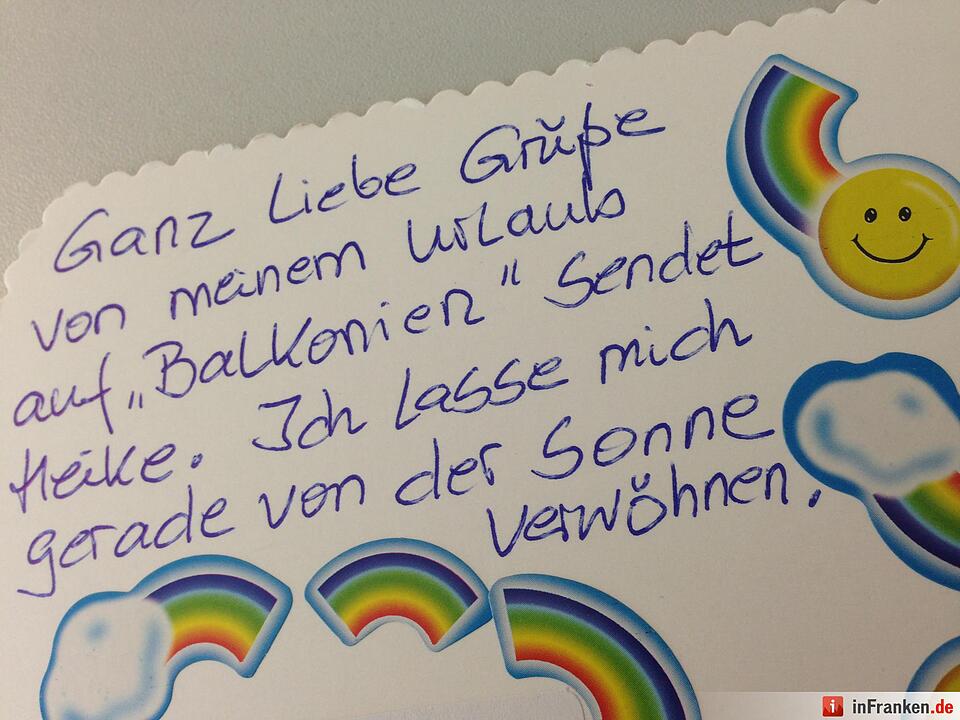 Ganz Liebe Grüße
von meinem Urlaub
auf „Balkonien" Sendet
Heike. Ich Lasse mich
gerade von der Sonne
verwöhnen.
i inFranken.de